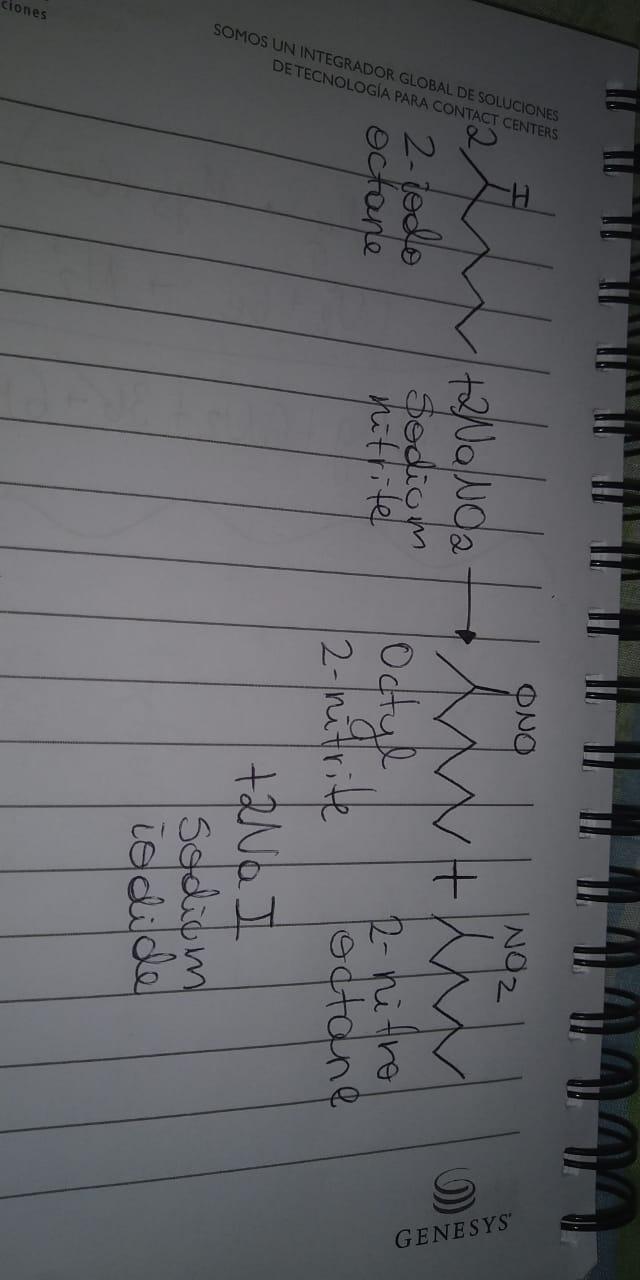 ciones
SOMOS UN INTEGRADOR GLOBAL DE SOLUCIONES
DE TECNOLOGÍA PARA CONTACT CENTERS
2
I
+2NaNO2
ONO
+
NO2
2-iodo
octane
Sodium
nitrite
Octyl
2-nitrite
2-nitro
octane
+2NaI
Sodium
iodide
GENESYS